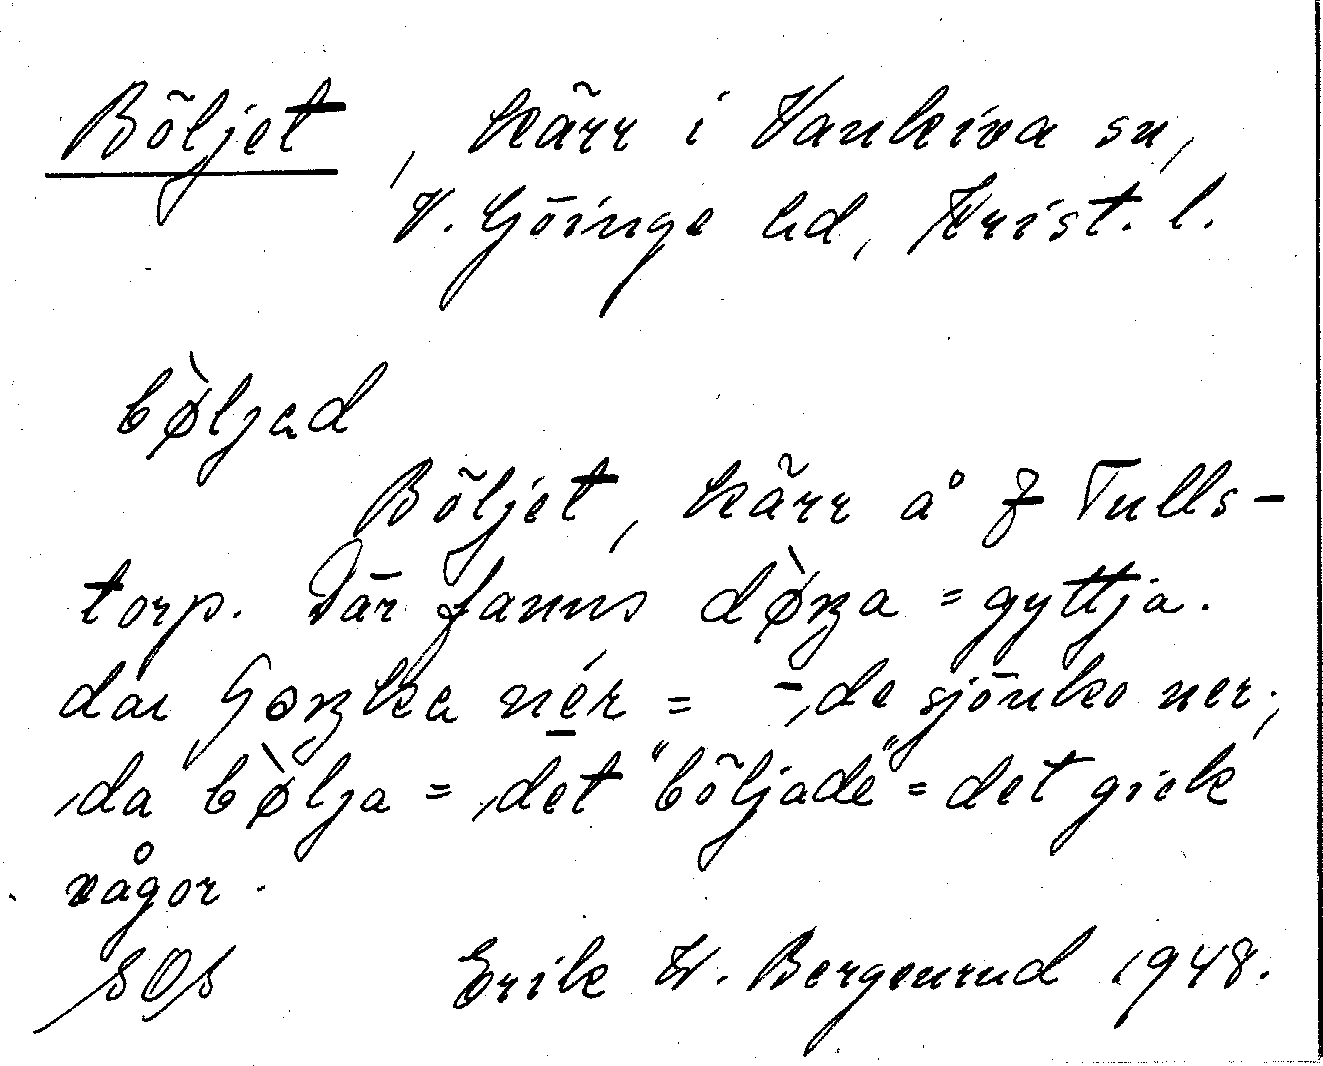 Böljet, kärr i Vankiva sn,
V. Göinge hd, Krist. l.
bø̀ljad
Böljet, kärr å Tulls-
torp. Där fanns = gyttja.
= „de sjönko ner;
da bø̀lja = „det "böljade" = det gick
vågor.
SOS Erik W. Bergenrud 1948.